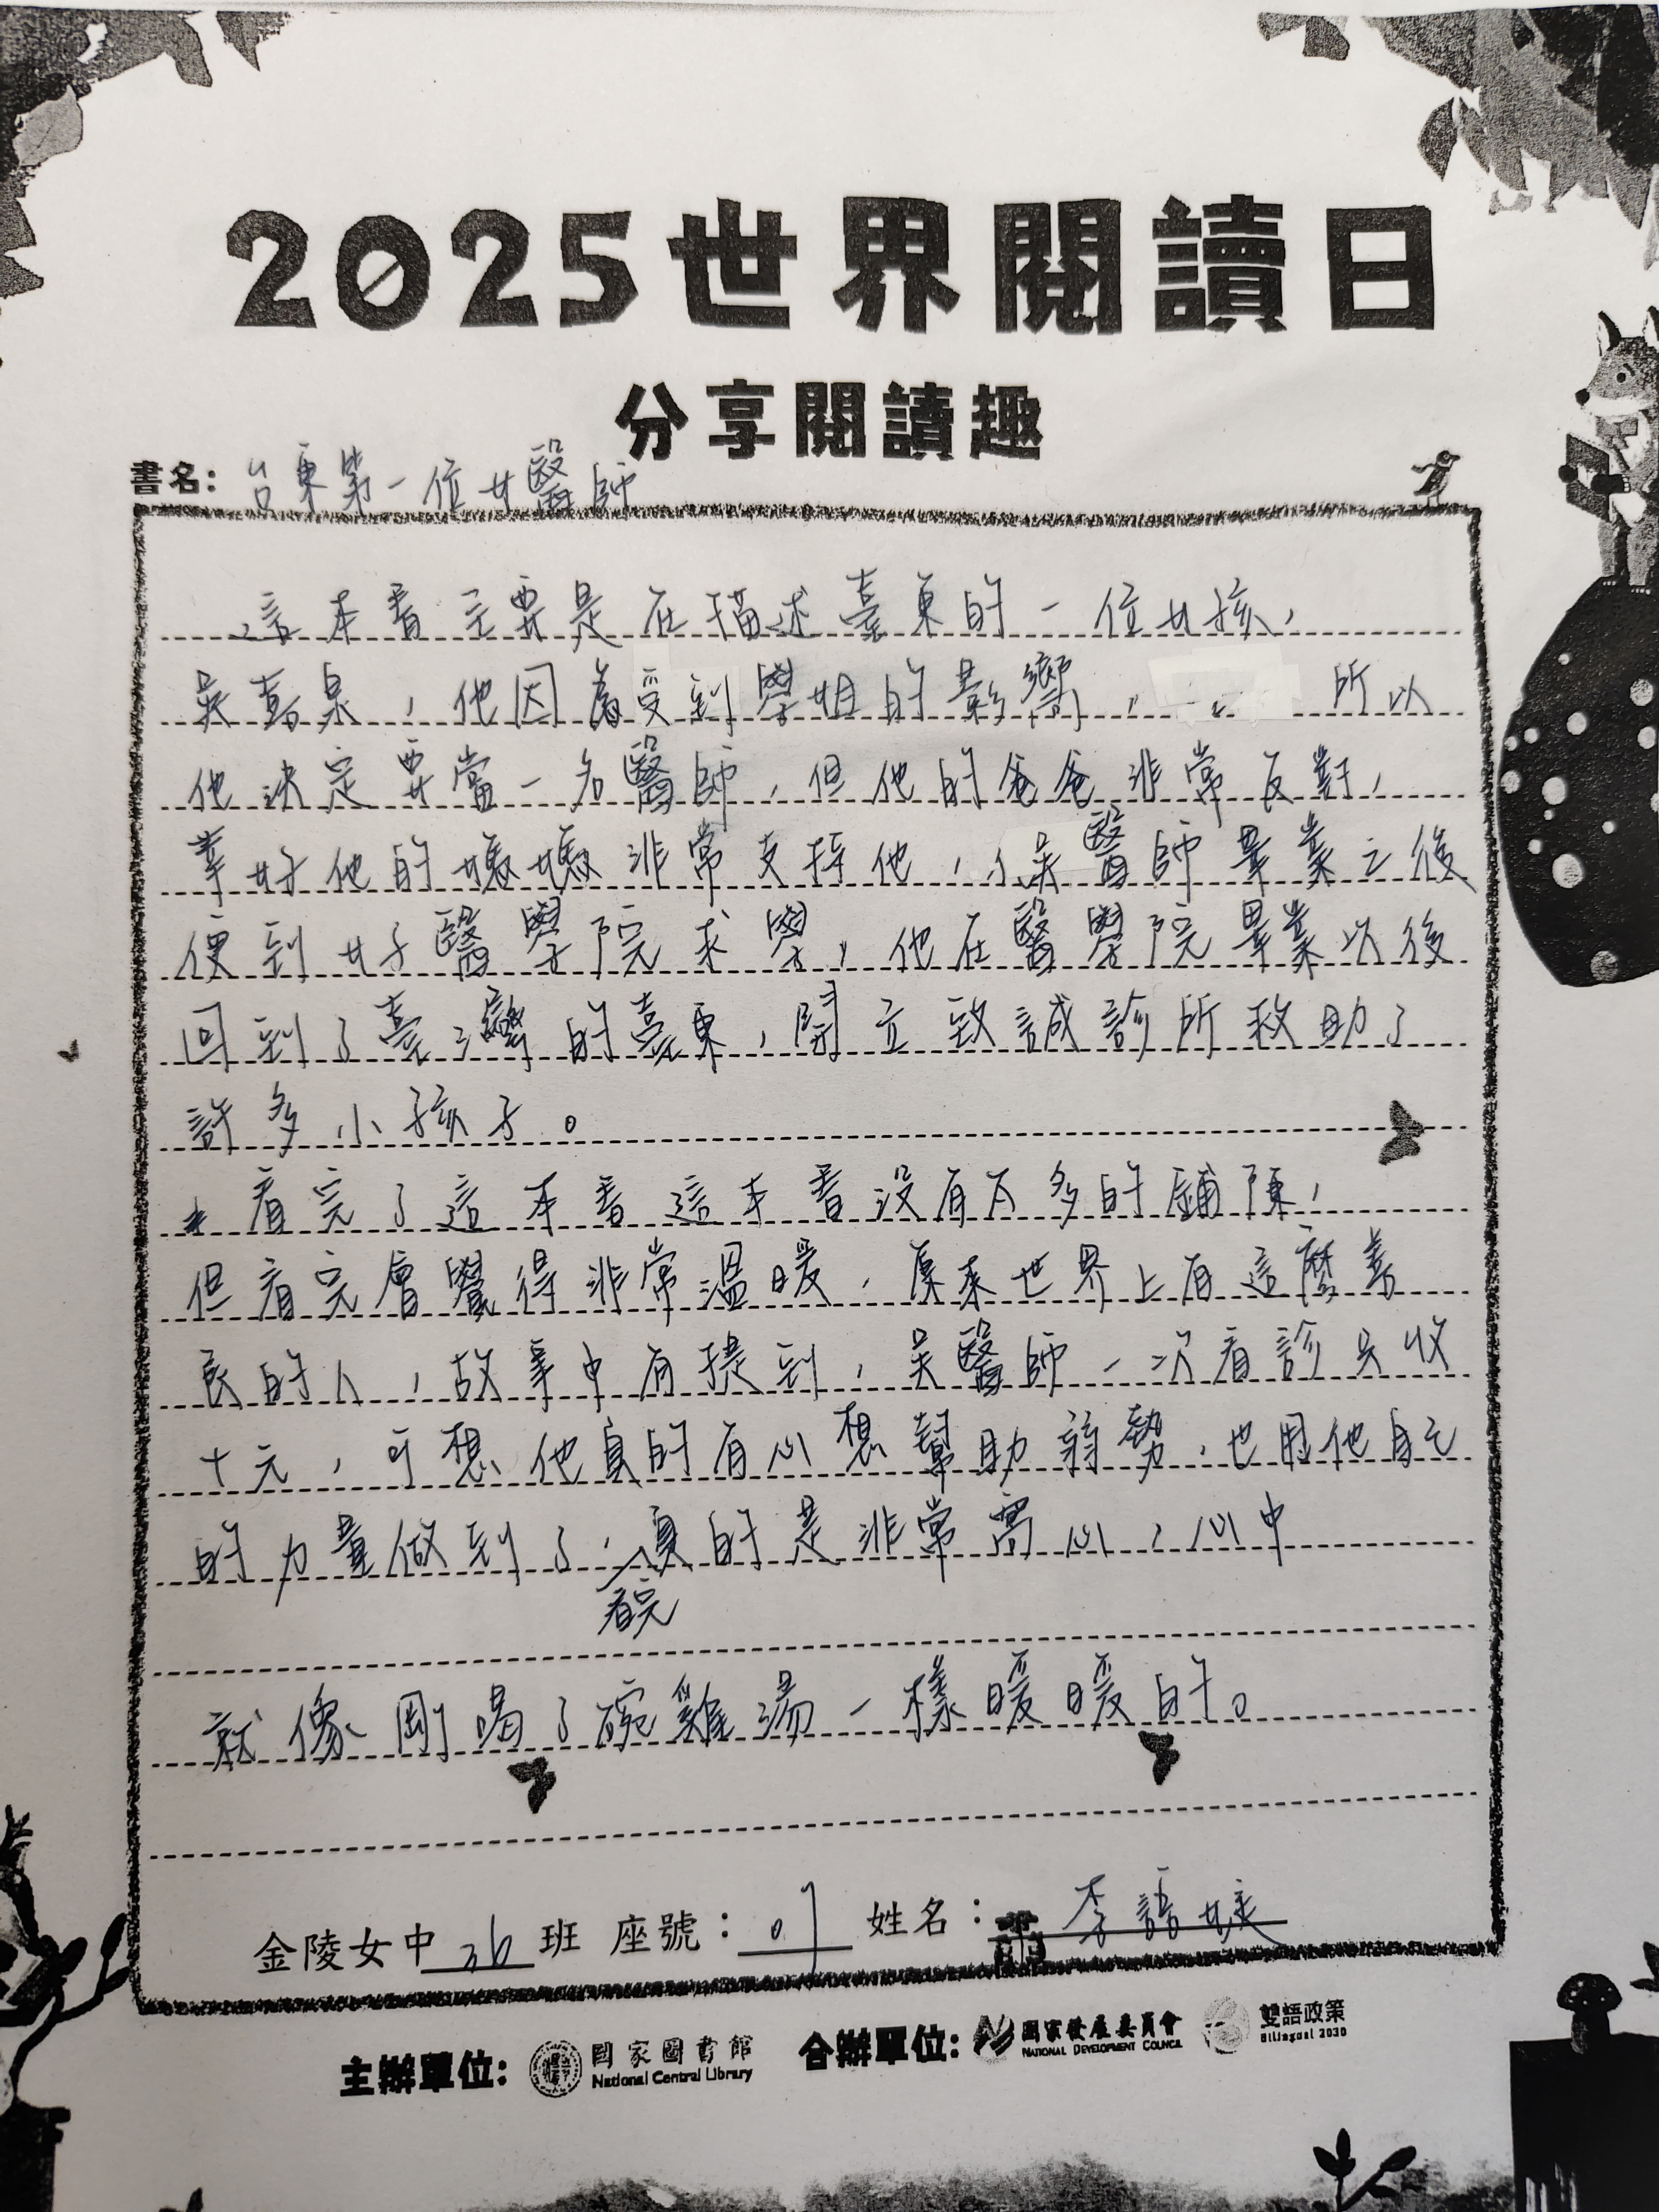 2025世界閱讀日
分享閱讀趣
書名：台東第一位女醫師
這本書主要是在描述臺東的一位女孩，
吳嘉泉，他因為受到學姐的影響，所以
他決定要當一名醫師，但他的爸爸非常反對，
幸好他的媽媽非常支持他，小吳醫師畢業之後
便到女子醫學院求學，他在醫學院畢業以後
回到了臺灣的臺東，開立致誠診所救助了
許多小孩子。
看完了這本書這本書沒有太多的鋪陳，
但看完會覺得非常溫暖，原來世界上有這麼善
良的人，故事中有提到，吳醫師一次看診只收
十元，可想他真的有心想幫助弱勢，也用他自己
的力量做到了，真的是非常窩心，心中
看完
就像剛喝了碗雞湯一樣暖暖的。
金陵女中 班 座號： 姓名：李語婕
主辦單位：國家圖書館 National Central Library 合辦單位：國家發展委員會 NATIONAL DEVELOPMENT COUNCIL 雙語政策 Bilingual 2030